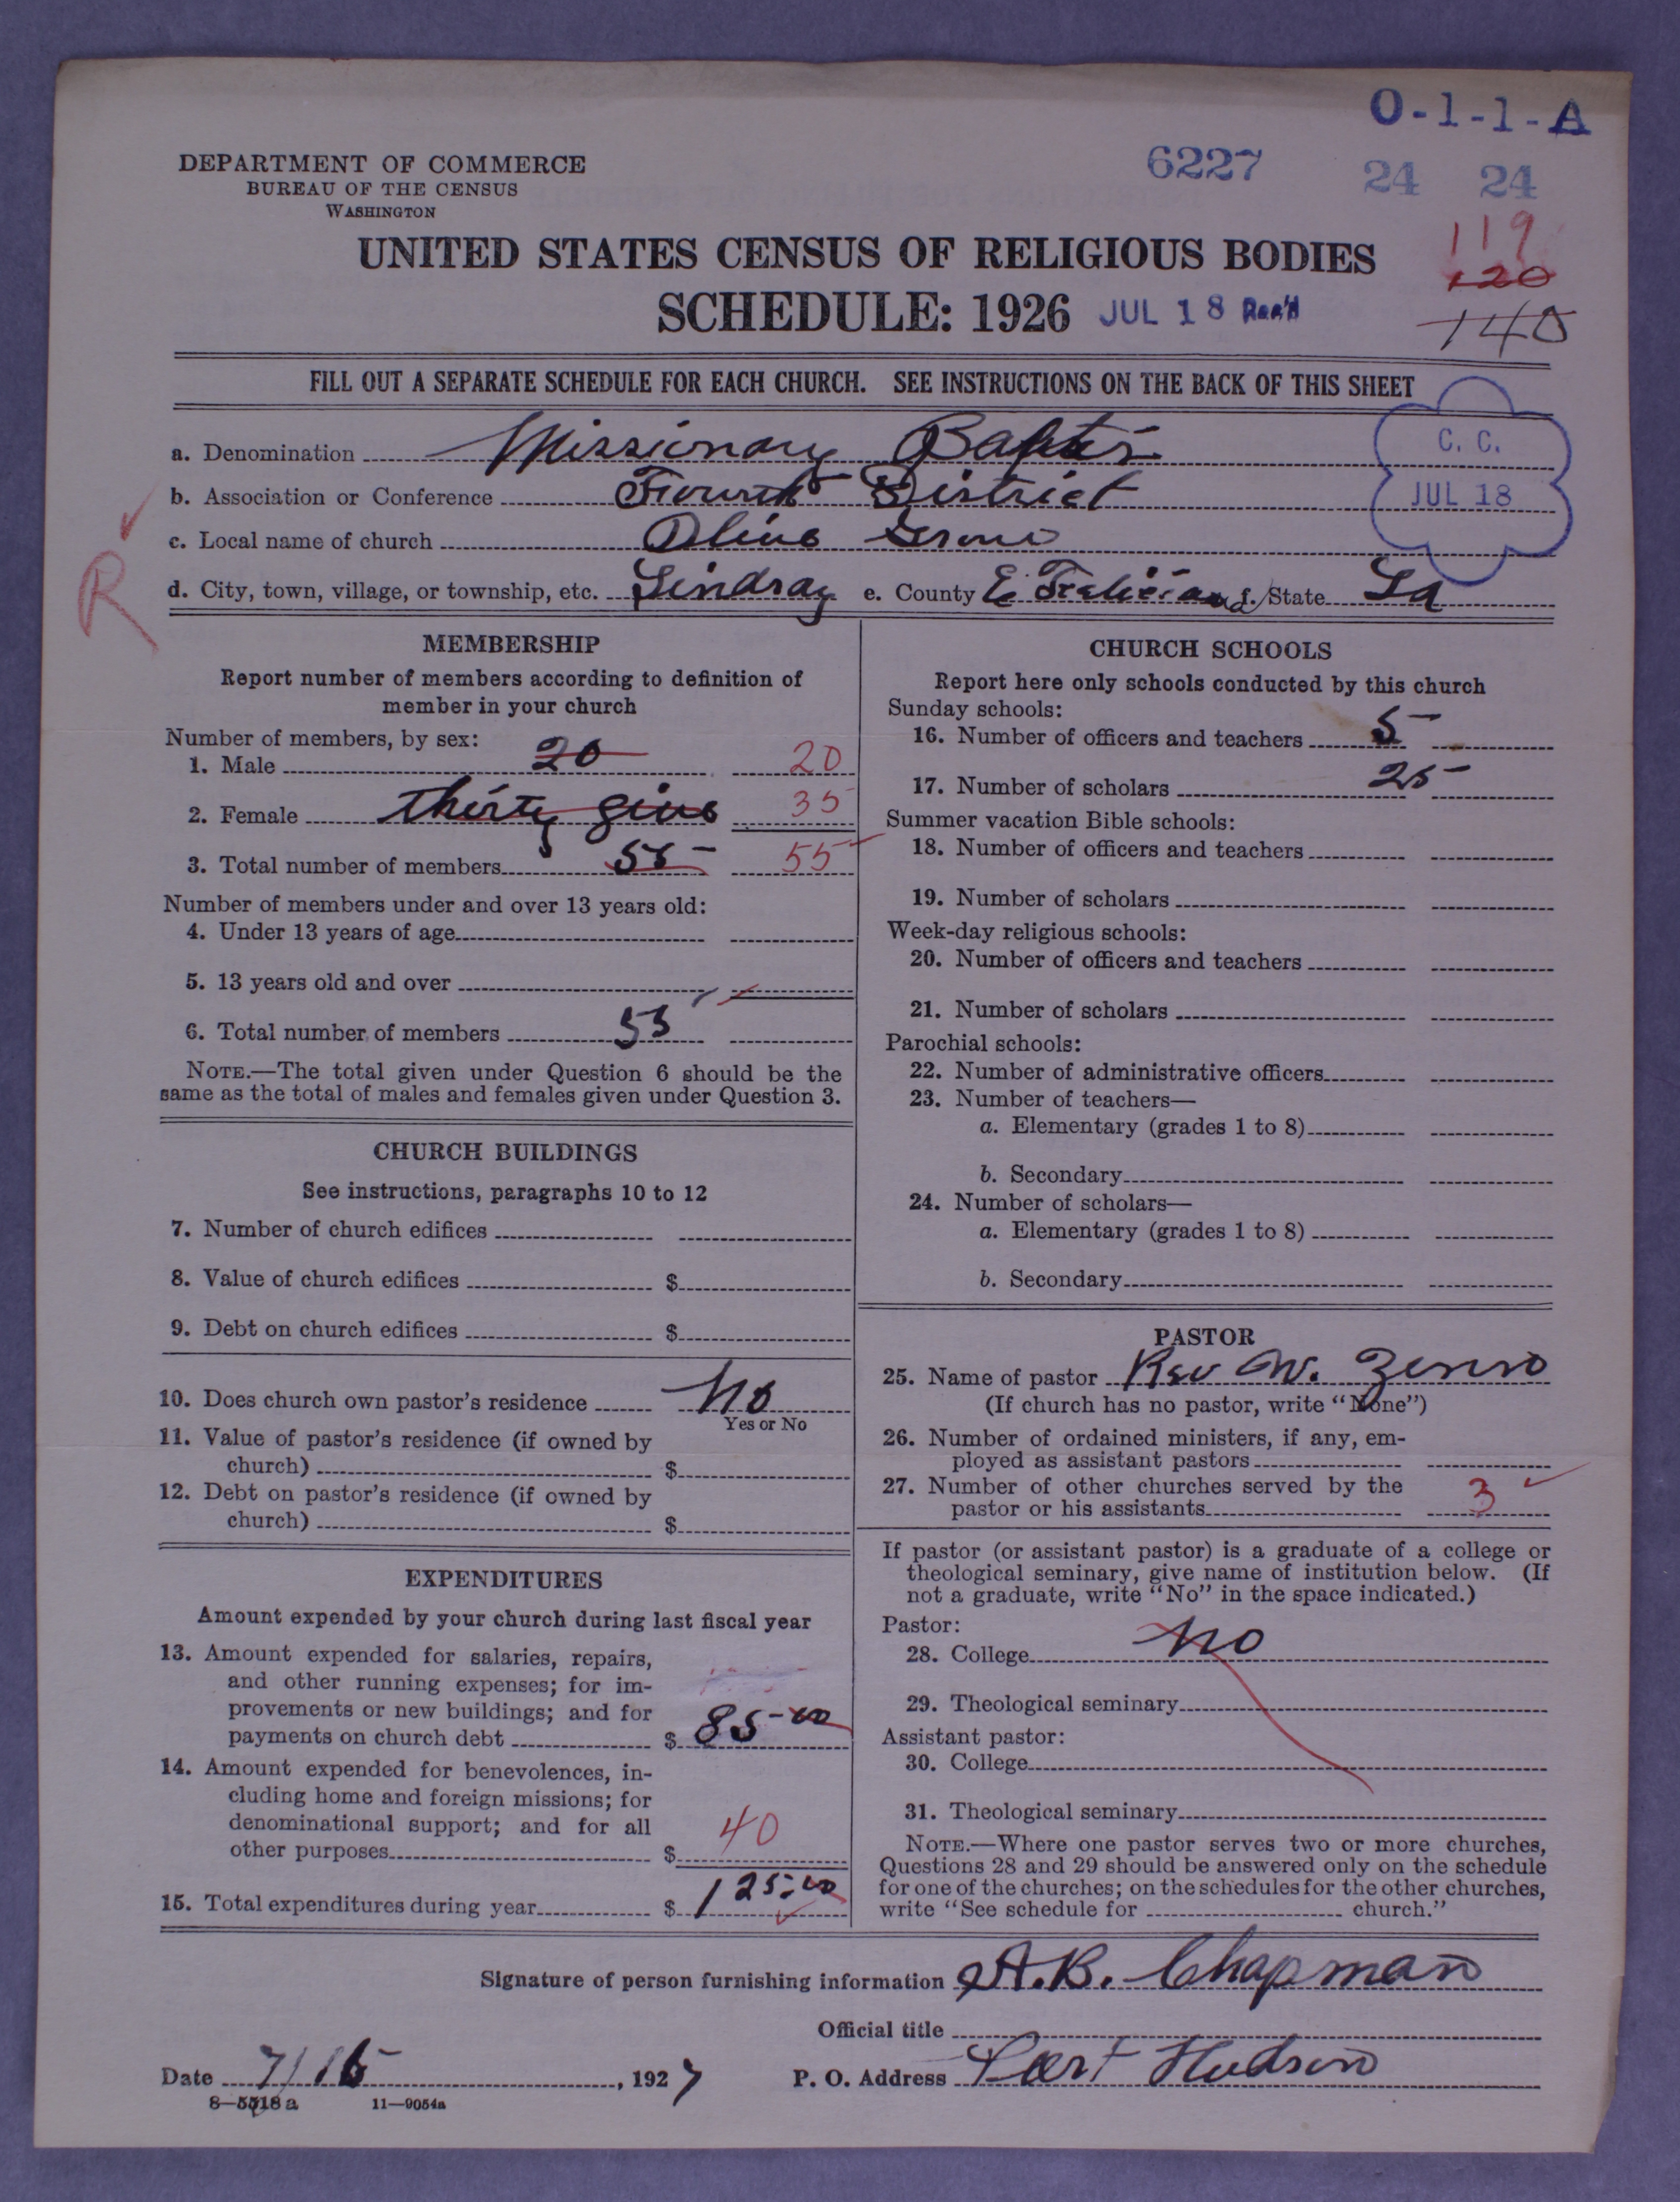 O-1-1-A
DEPARTMENT OF COMMERCE
BUREAU OF THE CENSUS
WASHINGTON
6227 24 24
119
120
140
UNITED STATES CENSUS OF RELIGIOUS BODIES
SCHEDULE: 1926 JUL 18 Rec'd
FILL OUT A SEPARATE SCHEDULE FOR EACH CHURCH. SEE INSTRUCTIONS ON THE BACK OF THIS SHEET
C. C.
JUL 18
R
a. Denomination Missionary Baptis
b. Association or Conference Fourth District
c. Local name of church Olive Grove
d. City, town, village, or township, etc. Lindsay e. County E. Feliciana f. State La
MEMBERSHIP
Report number of members according to definition of
member in your church
Number of members, by sex:
1. Male 20 20
2. Female thirty five 35
3. Total number of members 55 55
Number of members under and over 13 years old:
4. Under 13 years of age
5. 13 years old and over
6. Total number of members 55
NOTE.—The total given under Question 6 should be the
same as the total of males and females given under Question 3.
CHURCH BUILDINGS
See instructions, paragraphs 10 to 12
7. Number of church edifices
8. Value of church edifices $
9. Debt on church edifices $
10. Does church own pastor's residence No
Yes or No
11. Value of pastor's residence (if owned by
church) $
12. Debt on pastor's residence (if owned by
church) $
EXPENDITURES
Amount expended by your church during last fiscal year
13. Amount expended for salaries, repairs,
and other running expenses; for im-
provements or new buildings; and for
payments on church debt $ 85-00
14. Amount expended for benevolences, in-
cluding home and foreign missions; for
denominational support; and for all
other purposes $ 40
15. Total expenditures during year $ 125.00
CHURCH SCHOOLS
Report here only schools conducted by this church
Sunday schools:
16. Number of officers and teachers 5
17. Number of scholars 25
Summer vacation Bible schools:
18. Number of officers and teachers
19. Number of scholars
Week-day religious schools:
20. Number of officers and teachers
21. Number of scholars
Parochial schools:
22. Number of administrative officers
23. Number of teachers—
a. Elementary (grades 1 to 8)
b. Secondary
24. Number of scholars—
a. Elementary (grades 1 to 8)
b. Secondary
PASTOR
25. Name of pastor Rev W.
(If church has no pastor, write "None")
26. Number of ordained ministers, if any, em-
ployed as assistant pastors
27. Number of other churches served by the
pastor or his assistants 3
If pastor (or assistant pastor) is a graduate of a college or
theological seminary, give name of institution below. (If
not a graduate, write "No" in the space indicated.)
Pastor:
28. College No
29. Theological seminary
Assistant pastor:
30. College
31. Theological seminary
NOTE.—Where one pastor serves two or more churches,
Questions 28 and 29 should be answered only on the schedule
for one of the churches; on the schedules for the other churches,
write "See schedule for church."
Signature of person furnishing information A. B. Chapman
Official title
Date 7/15, 1927 P. O. Address Port Hudson
8—5518 a 11—9054a